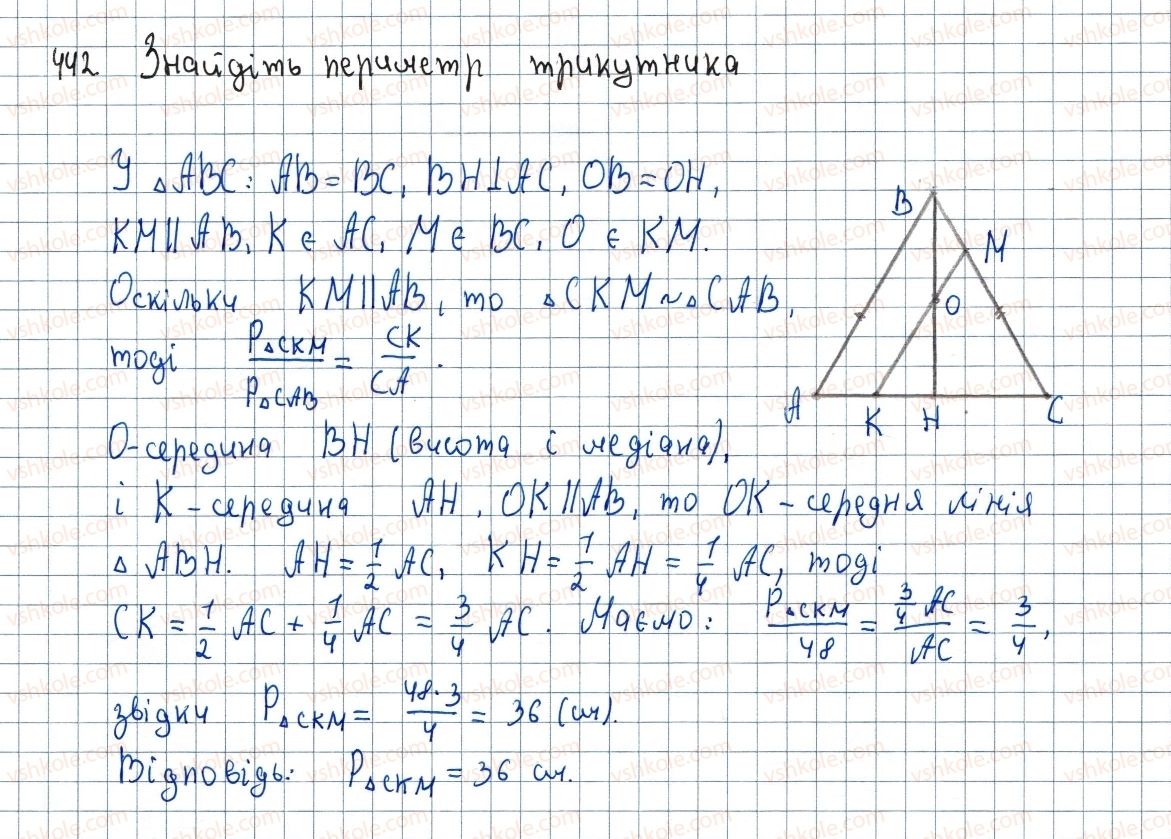 442. Знайдіть периметр трикутника
У △ABC: AB = BC, BH⊥AC, OB = OH,
KM || AB, K є AC, M є BC, O є KM.
Оскільки KM||AB, то △CKM ~ △CAB,
тоді P△CKM / P△CAB = CK / CA.
O-середина BH (висота і медіана),
і K - середина AH, OK || AB, то OK - середня лінія
△ ABH. AH = 1/2 AC, KH = 1/2 AH = 1/4 AC, тоді
CK = 1/2 AC + 1/4 AC = 3/4 AC. Маємо: P△CKM / 48 = 3/4 AC / AC = 3/4,
звідки P△CKM = 48·3 / 4 = 36 (см).
Відповідь: P△CKM = 36 см.
B
M
O
A
K
H
C
vshkole.com